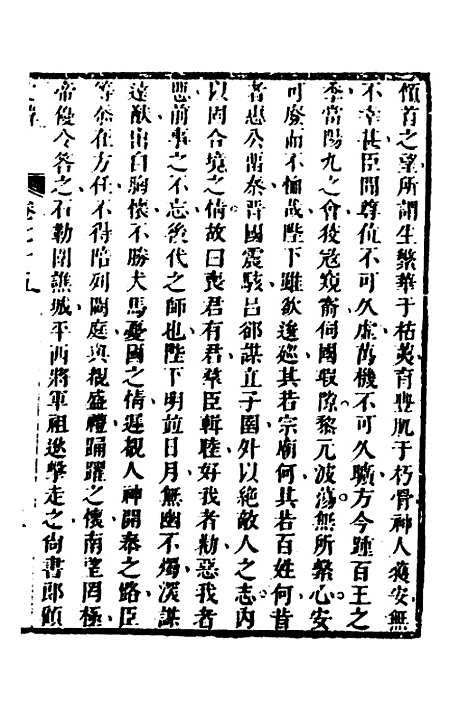 傾首之望所謂生繁華于枯荑育豐肌于朽骨神人獲安無
不幸甚臣聞尊位不可久虛萬機不可久曠方今踵百王之
季當陽九之會狡寇窺窬伺國瑕隙黎元波蕩無所繫心安
可廢而不恤哉陛下雖欲逡巡其若宗廟何其若百姓何昔
者惠公虜秦晉國震駭呂郤謀立子圉外以絶敵人之志內
以固合境之情故曰喪君有君羣臣輯睦好我者勸惡我者
懼前事之不忘後代之師也陛下明竝日月無幽不燭深謀
遠猷出自胸懷不勝犬馬憂國之情遲覩人神開泰之路臣
等忝在方任不得陪列闕庭與覩盛禮踊躍之懷南望罔極
帝優令答之石勒圍譙城平西將軍祖逖擊走之尚書郎顗
卷七十五